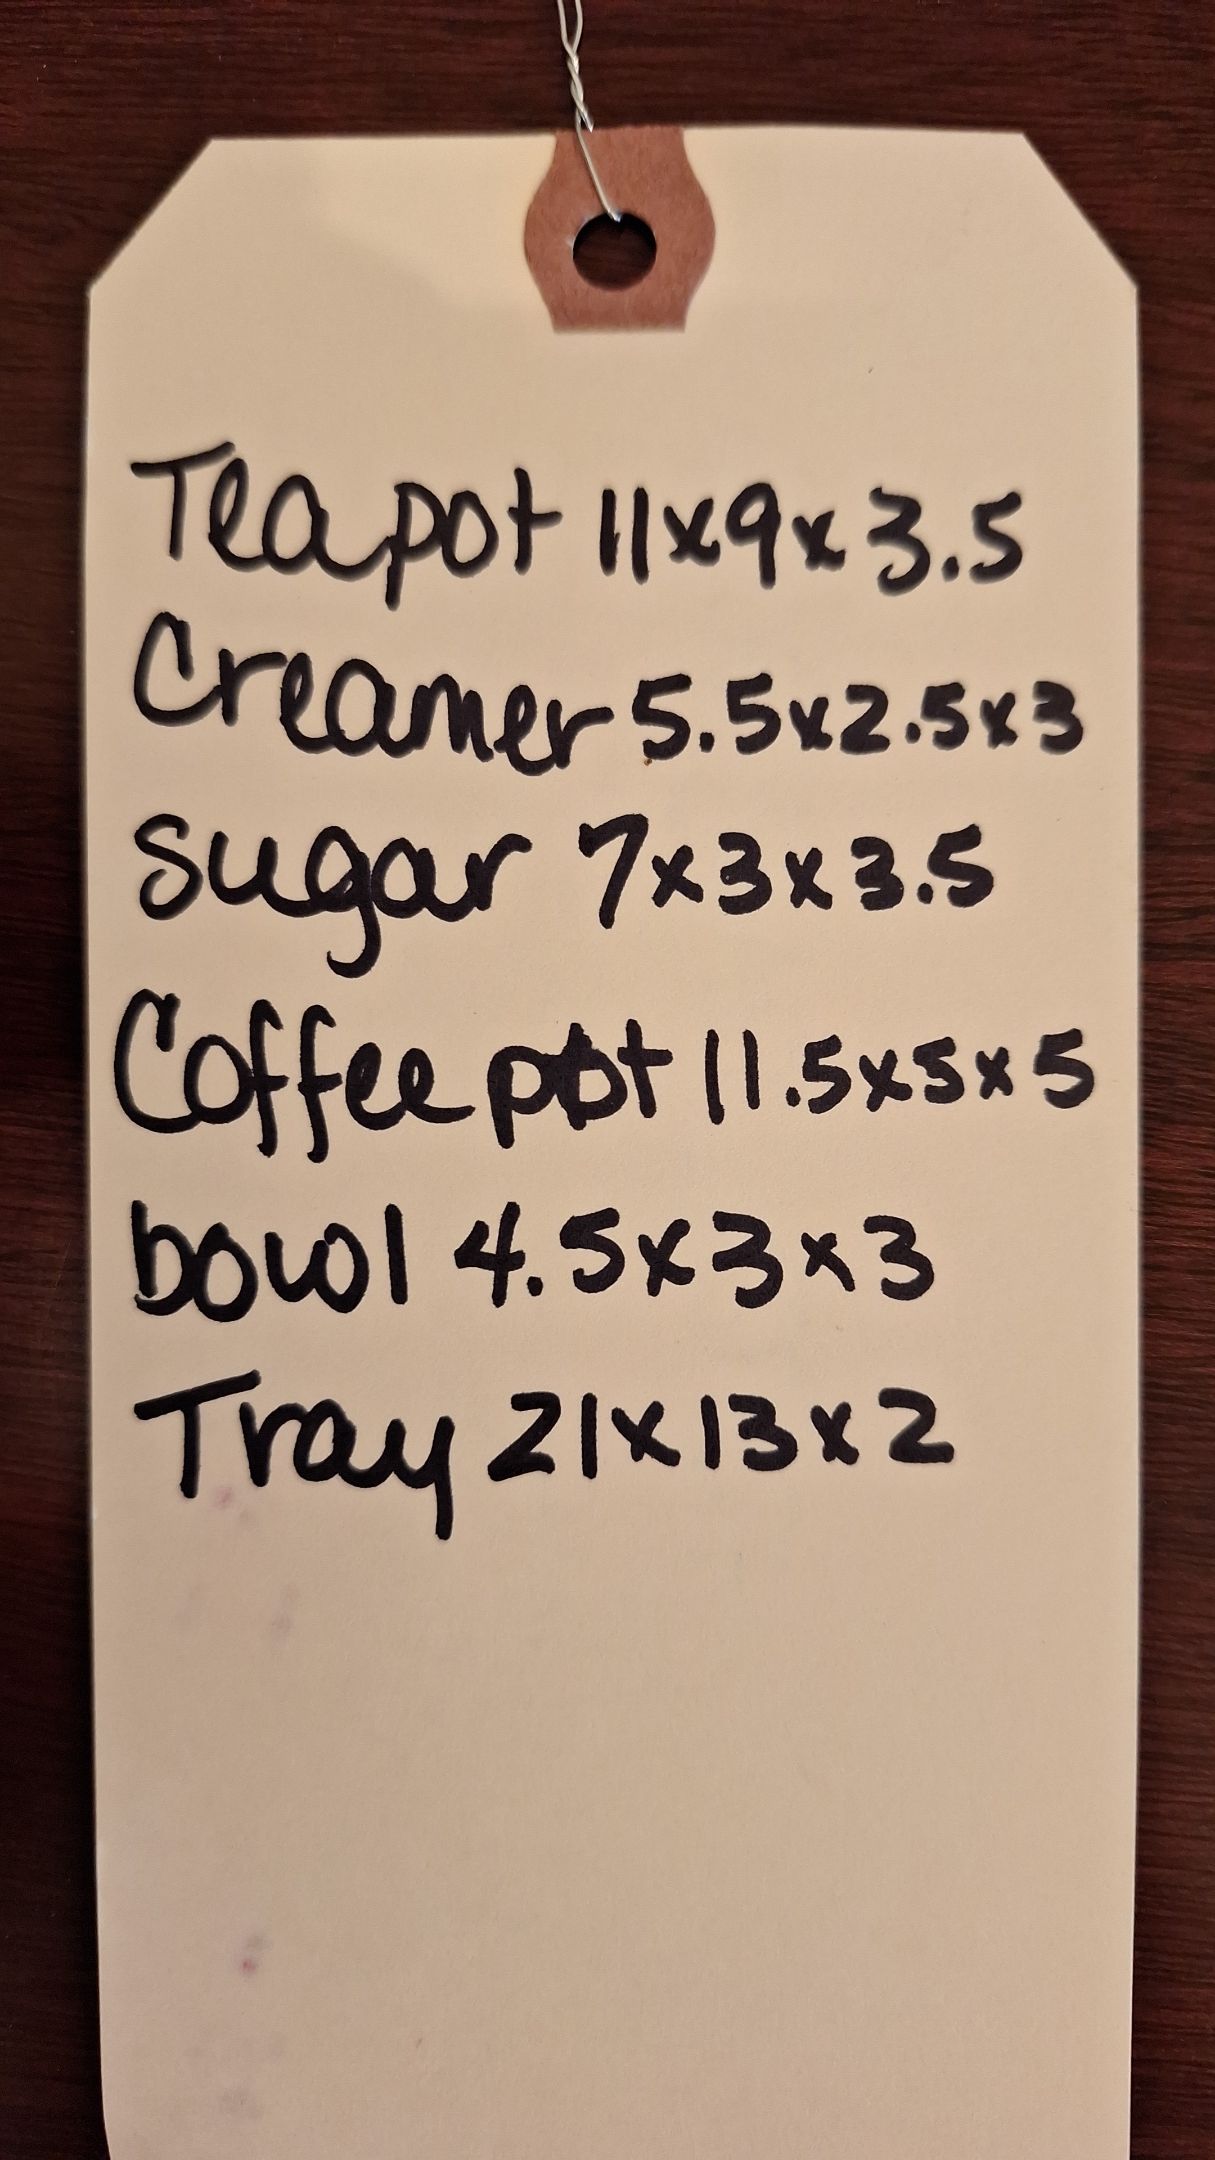 Teapot 11x9x3.5
Creamer 5.5x2.5x3
sugar 7x3x3.5
Coffee pot 11.5x5x5
bowl 4.5x3x3
Tray 21x13x2